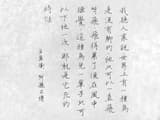 我聽人家說世界上有一種鳥
是沒有腳的他只可以一直飛
呀飛飛得累了便在風中
睡覺這種鳥一輩子只可
以下地一次那就是它死的
時候
王家衛 阿飛正傳